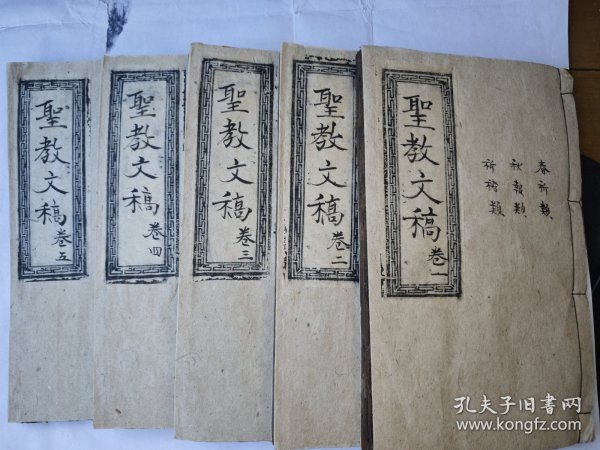 聖教文稿 卷一
春祈類
秋報類
祈禱類
聖教文稿 卷二
聖教文稿 卷三
聖教文稿 卷四
聖教文稿 卷五
孔夫子旧书网
www.kongfz.com